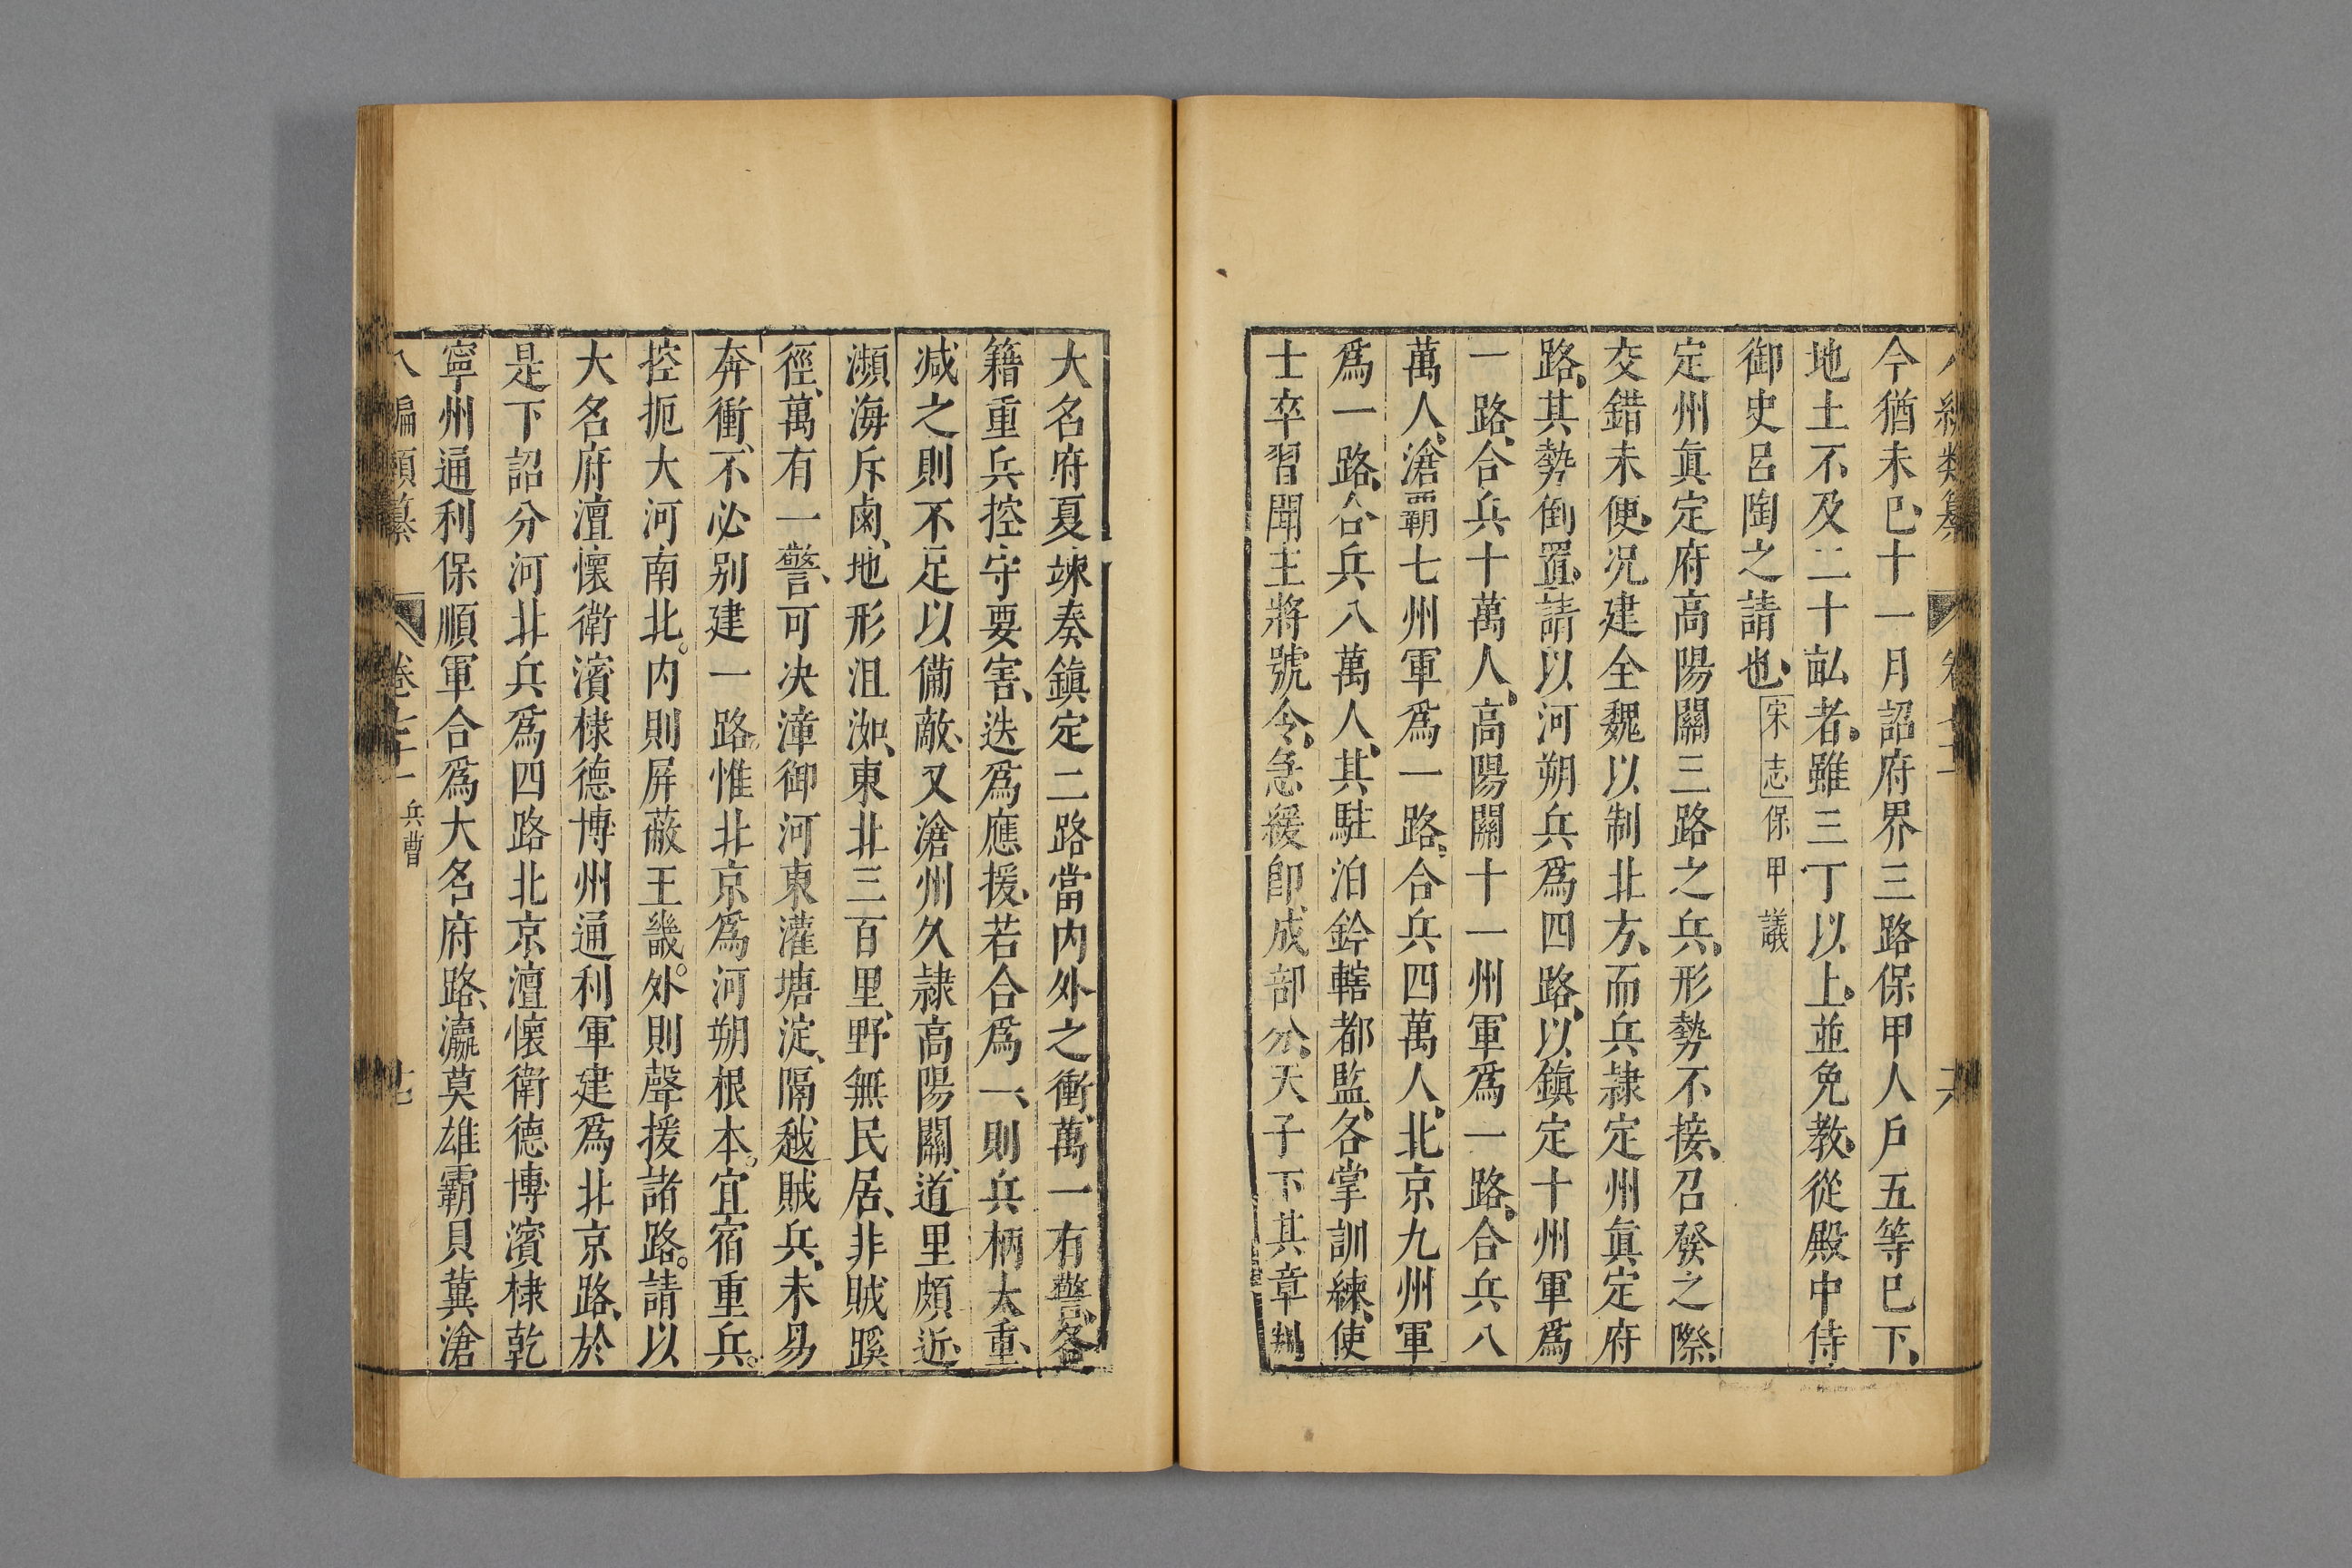 今猶未已十一月詔府界三路保甲人戶五等已下、
地土不及二十畝者、雖三丁以上、並免教、從殿中侍
御史呂陶之請也、宋志保甲議
定州眞定府高陽關三路之兵、形勢不接、召發之際、
交錯未便、况建全魏以制北方、而兵隷定州眞定府
路、其勢倒置、請以河朔兵爲四路、以鎮定十州軍爲
一路、合兵十萬人、高陽關十一州軍爲一路、合兵八
萬人、滄覇七州軍爲一路、合兵四萬人、北京九州軍
爲一路、合兵八萬人、其駐泊鈐轄都監、各掌訓練、使
士卒習聞主將號令、急緩卽成部分、天子下其章判
大名府夏竦奏鎮定二路當内外之衝、萬一有警、各
籍重兵控守要害、迭爲應援、若合爲一、則兵柄太重、
减之則不足以備敵、又滄州久隷高陽關、道里頗近、
瀕海斥鹵、地形沮洳、東北三百里、野無民居、非賊蹊
徑、萬有一警、可决漳御河東灌塘淀、隔越賊兵、未易
奔衝、不必别建一路。惟北京爲河朔根本。宜宿重兵。
控扼大河南北。内則屏蔽王畿。外則聲援諸路。請以
大名府澶懷衛濱棣德博州通利軍建爲北京路、於
是下詔分河北兵爲四路北京澶懷衛德博濱棣乾
寧州通利保順軍合爲大名府路、瀛莫雄霸貝冀滄
八編類纂 卷七十一 兵曹